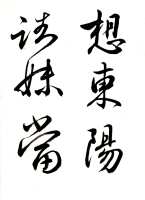 想東陽
諸妹當